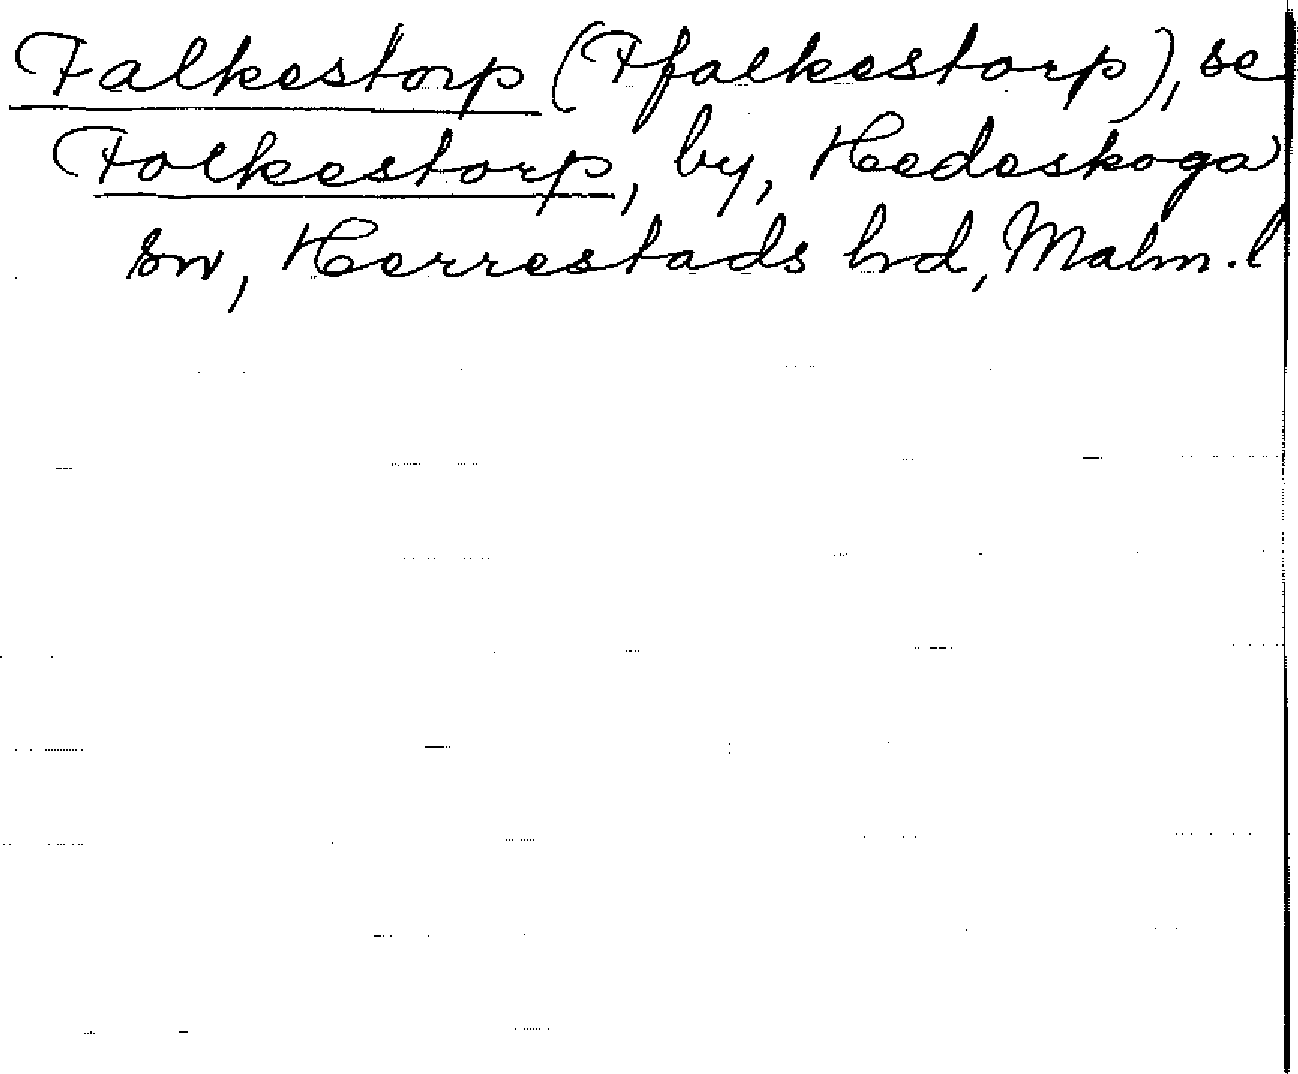 Falkestorp (Ffalkestorp), se
Folkestorp, by, Hedeskoga
sn, Herrestads hrd, Malm. l